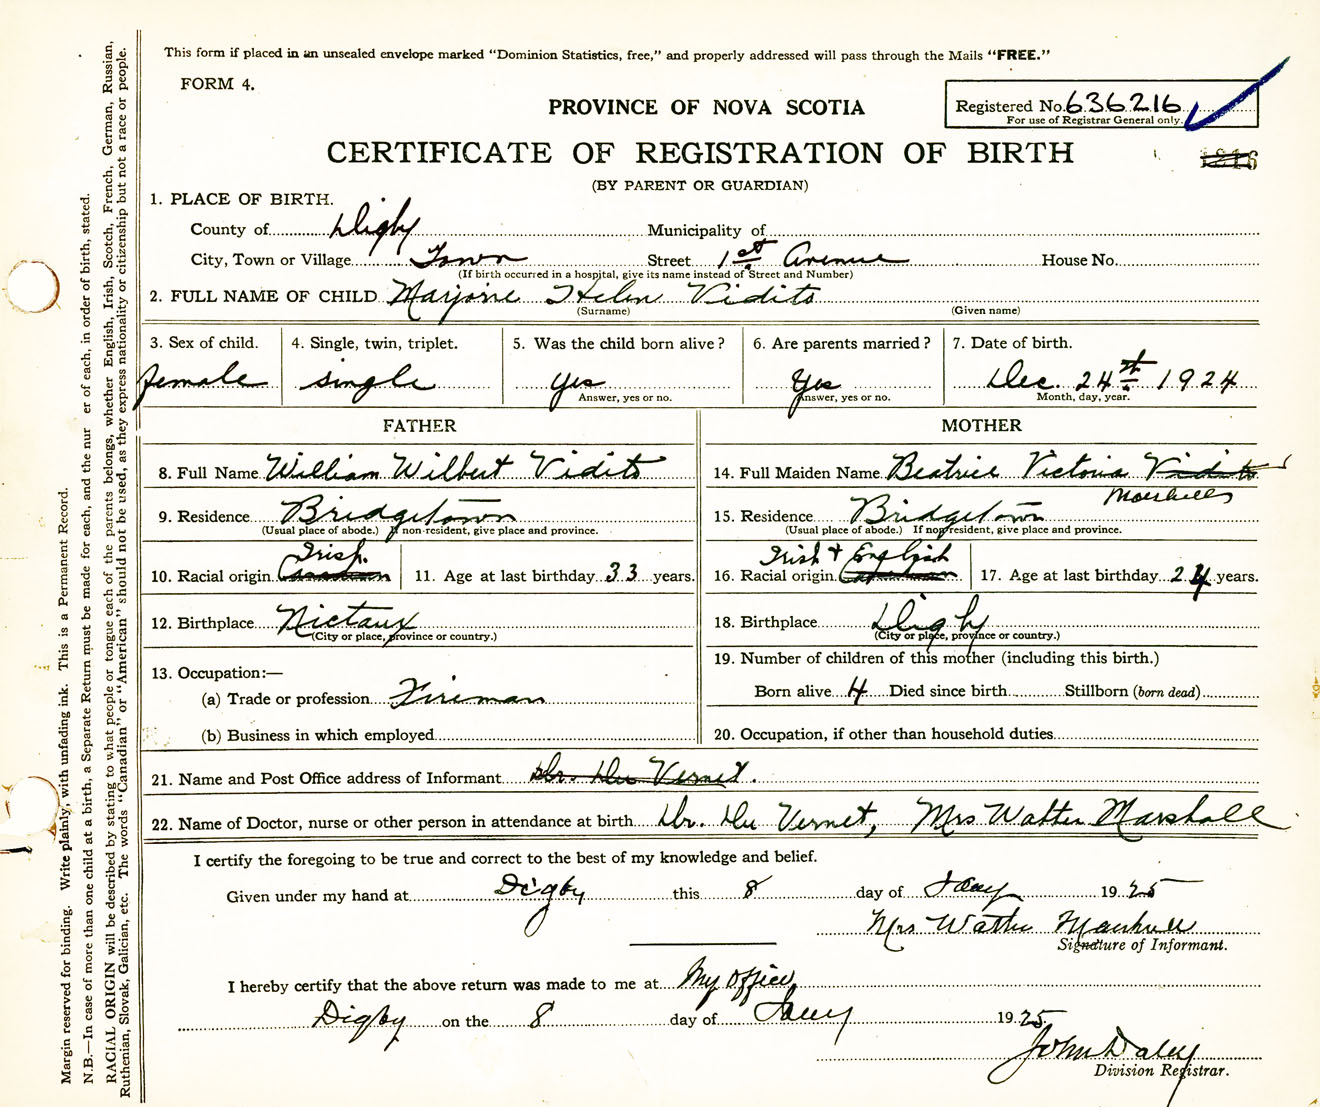 This form if placed in an unsealed envelope marked "Dominion Statistics, free," and properly addressed will pass through the Mails "FREE."
FORM 4.
Registered No. 636216
For use of Registrar General only.
PROVINCE OF NOVA SCOTIA
CERTIFICATE OF REGISTRATION OF BIRTH
(BY PARENT OR GUARDIAN)
1. PLACE OF BIRTH.
County of Digby Municipality of
City, Town or Village Town Street 1st Avenue House No.
(If birth occurred in a hospital, give its name instead of Street and Number)
2. FULL NAME OF CHILD Marjorie Helen Vidito
(Surname) (Given name)
3. Sex of child. 4. Single, twin, triplet. 5. Was the child born alive? 6. Are parents married? 7. Date of birth.
female single yes Yes Dec. 24th 1924
Answer, yes or no. Answer, yes or no. Month, day, year.
FATHER MOTHER
8. Full Name William Wilbert Vidito 14. Full Maiden Name Beatrice Victoria Vidito
Marshall
9. Residence Bridgetown 15. Residence Bridgetown
(Usual place of abode.) If non-resident, give place and province. (Usual place of abode.) If non-resident, give place and province.
Irish Irish + English
10. Racial origin Canadian 11. Age at last birthday 33 years. 16. Racial origin Canadian 17. Age at last birthday 24 years.
12. Birthplace Nictaux 18. Birthplace Digby
(City or place, province or country.) (City or place, province or country.)
13. Occupation:— 19. Number of children of this mother (including this birth.)
(a) Trade or profession Fireman Born alive 4 Died since birth Stillborn (born dead)
(b) Business in which employed 20. Occupation, if other than household duties
21. Name and Post Office address of Informant Dr. Du Vernet.
22. Name of Doctor, nurse or other person in attendance at birth Dr. Du Vernet, Mrs Walter Marshall
I certify the foregoing to be true and correct to the best of my knowledge and belief.
Given under my hand at Digby this 8 day of Jany 1925
Mrs Walter Marshall
Signature of Informant.
I hereby certify that the above return was made to me at My Office
Digby on the 8 day of Jany 1925
John Daley
Division Registrar.
Margin reserved for binding. Write plainly, with unfading ink. This is a Permanent Record.
N.B.—In case of more than one child at a birth, a Separate Return must be made for each, and the nur er of each, in order of birth, stated.
RACIAL ORIGIN will be described by stating to what people or tongue each of the parents belongs, whether English, Irish, Scotch, French, German, Russian,
Ruthenian, Slovak, Galician, etc. The words "Canadian" or "American" should not be used, as they express nationality or citizenship but not a race or people.